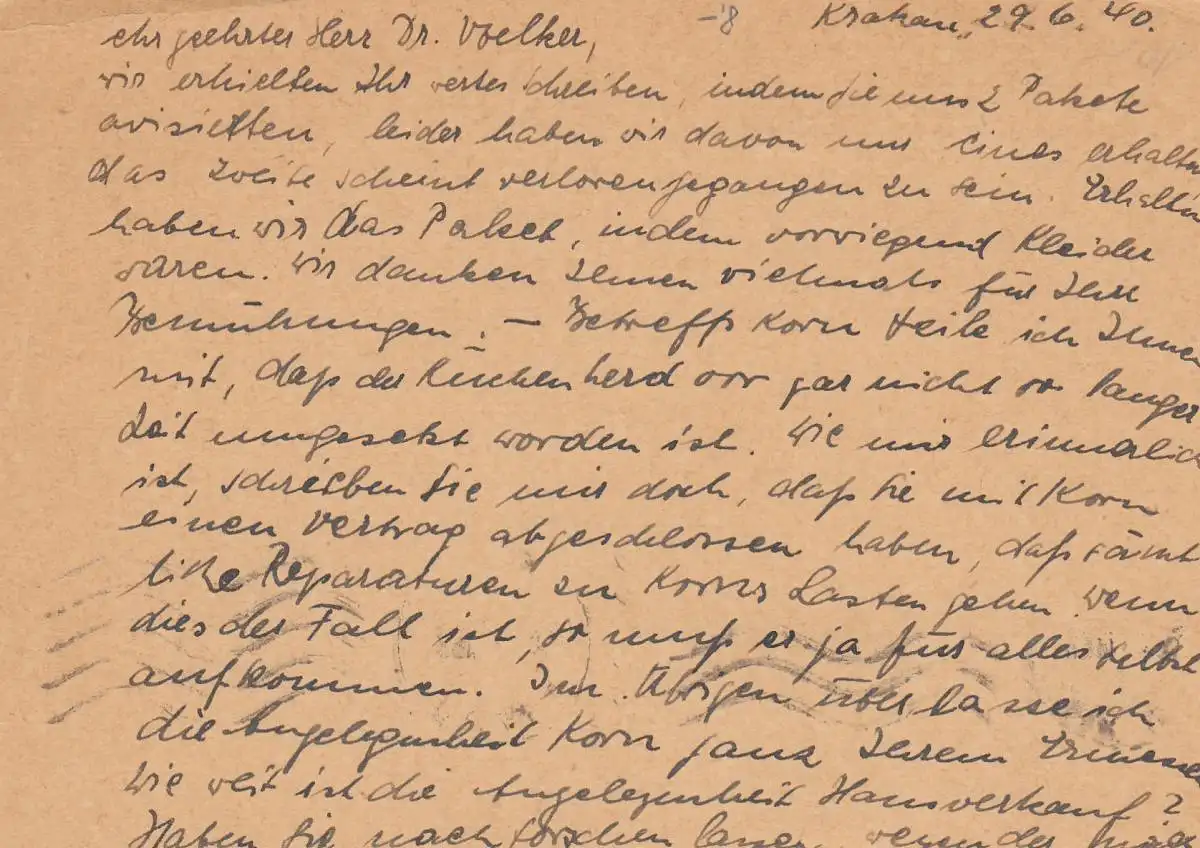 -'8 Krakau, 29.6.40.
ehr geehrter Herr Dr. Voelker,
wir erhielten Ihr wertes Schreiben, indem Sie uns 2 Pakete
avisierten, leider haben wir davon nur eines erhalten
das zweite scheint verloren gegangen zu sein. Erhalten
haben wir das Paket, indem vorwiegend Kleider
waren. Wir danken Ihnen vielmals für Ihre
Bemühungen. – Betreffs Korn teile ich Ihnen
mit, daß der Küchenherd vor gar nicht so langer
Zeit umgesetzt worden ist. Wie mir erinnerlich
ist, schrieben Sie mir doch, daß Sie mit Korn
einen Vertrag abgeschlossen haben, daß sämt
liche Reparaturen zu Korns Lasten gehen. Wenn
dies der Fall ist, so muß er ja für alles selbst
aufkommen. Im Übrigen überlasse ich
die Angelegenheit Korn ganz Ihrem Ermessen
Wie weit ist die Angelegenheit Hausverkauf?
Haben Sie nach forschen lassen, wenn der